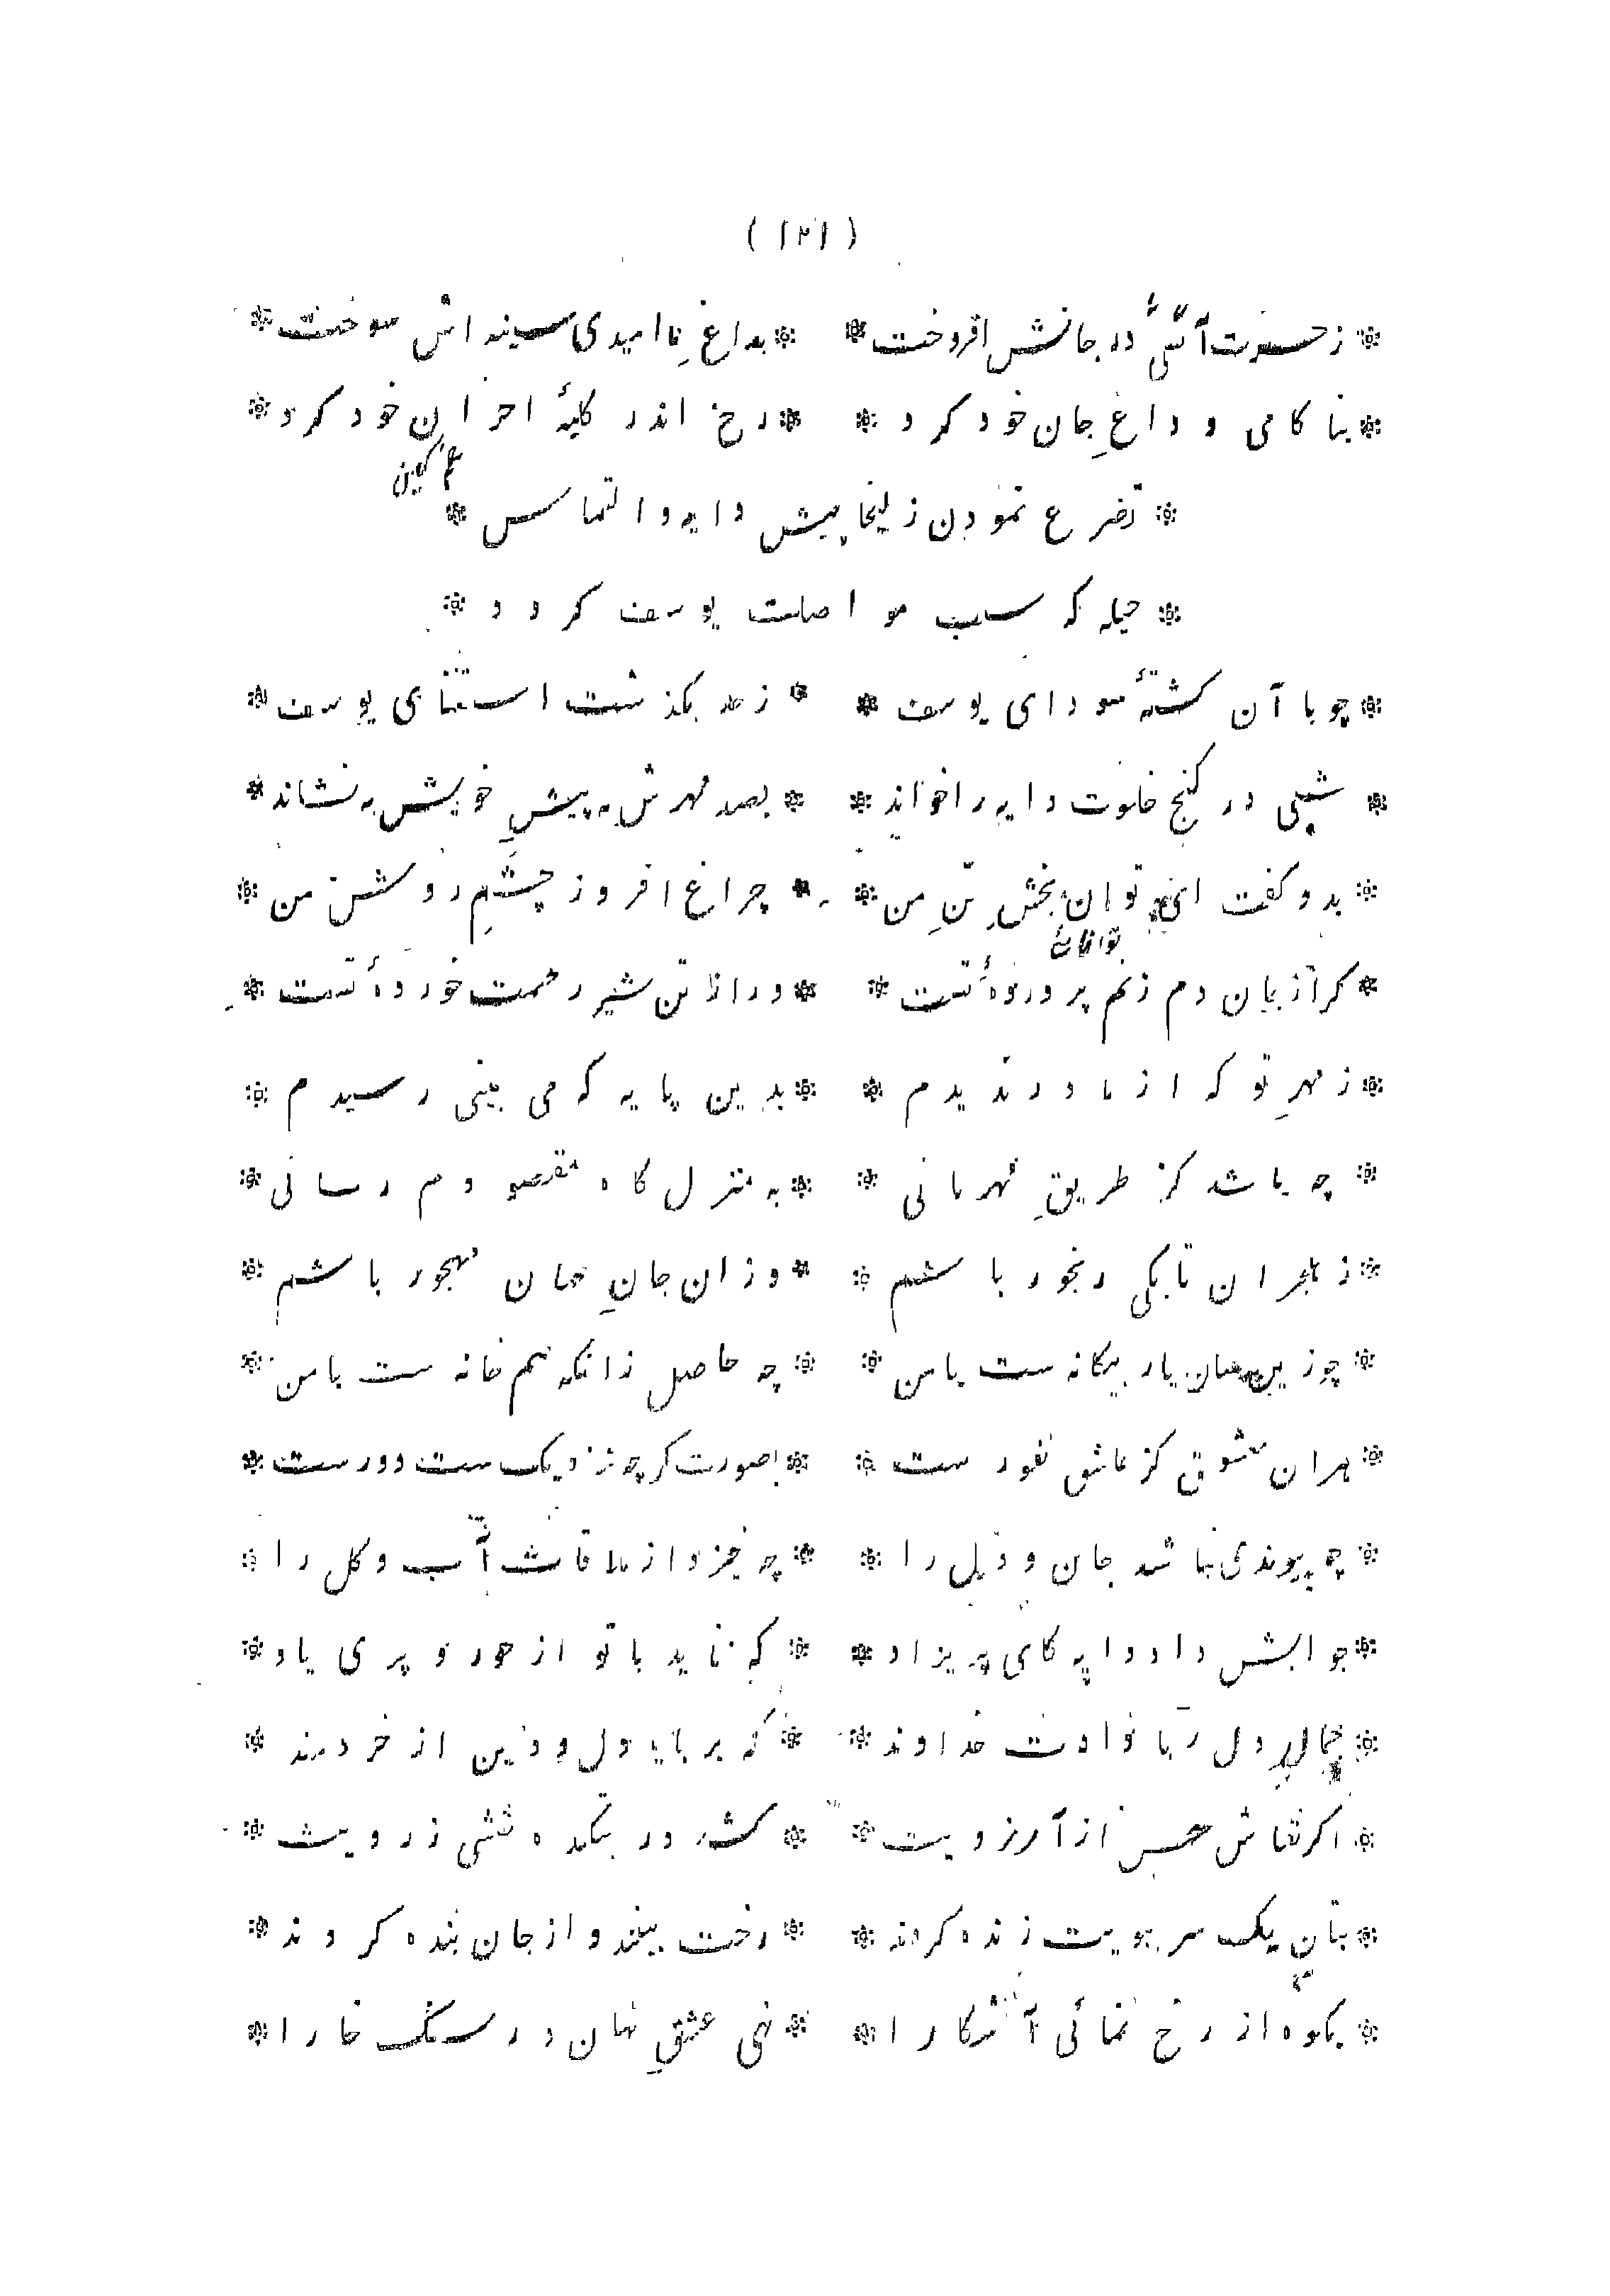 ( ۱۲۱ )
* زحسرت آتشی در جانش افروخت * * بداغ ناامیدی سینه اش سوخت *
* بناکامی وداغ جان خود کرد * * رخ اندر کلبهٔ احزان خود کرد *
غمگین
* تضرع نمودن زلیخا پیش دایه والتماس *
* حیله که سبب مواصلت یوسف کردد *
* چوبا آن کشتهٔ سودای یوسف * * زحد بکذشت استغنای یوسف *
* شبی در کنج خلوت دایه راخواند * * بصد مهرش به پیشِ خویش به نشاند *
* بدو کفت ای توان بخشِ تنِ من * * چراغ افروز چشمِ روشن من *
* کر از جان دم زنم پروردهٔ تست * * ور از تن شیر رحمت خوردهٔ تست *
* ز مهرِ تو که از مادر ندیدم * * بدین پایه که می بینی رسیدم *
* چه باشد کز طریقِ مهربانی * * به منزل کاه مقصودم رسانی *
* ز هجران تابکی رنجور باشم * * وزان جانِ جهان مهجور باشم *
* چوزین سان یار بیکانه ست بامن * * چه حاصل زانکه هم خانه ست بامن *
* هران معشوق کز عاشق نفور ست * * بصورت کرچه نزدیک ست دورست *
* چه پیوندی نباشد جان ودل را * * چه خیزد از ملاقات آب وکل را *
* جوابش داد دایه کای پریزاد * * که ناید باتو از حور و پری یاد *
* جمالِ دل ربا دادت خداوند * * که برباید دل ودین از خردمند *
* اکر نقاش چین از آرزویت * * کشد در بتکده نقشی ز رویت *
* بتان یک سر ببویت زنده کردند * * رخت بینند و از جان بنده کردند *
* بکوه از رخ نمائی آشکارا * * نهی عشقِ نهان در سنک خارا *